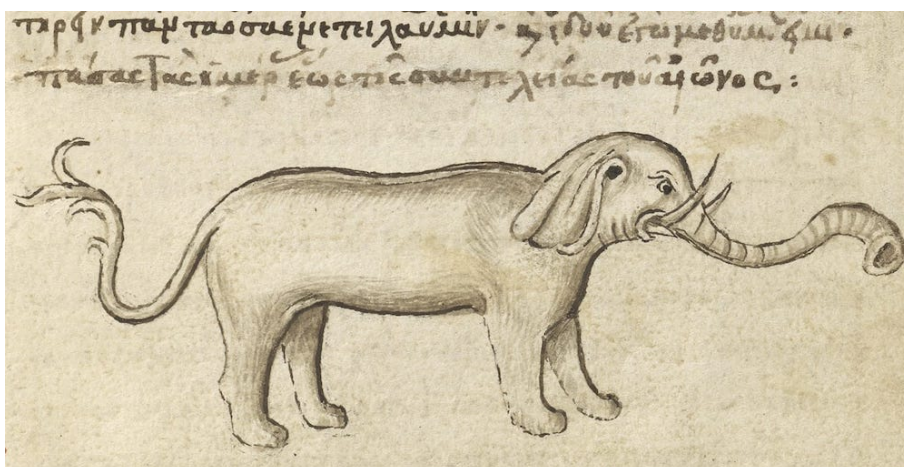 τηρεῖν πάντα ὅσα ἐνετειλάμην· ϗ ἰδοὺ ἐγὼ μεθ ὑμῶν εἰμι·
πάσας τὰς ἡμέρ ἕως τῆς συντελείας τοῦ αἰῶνος: